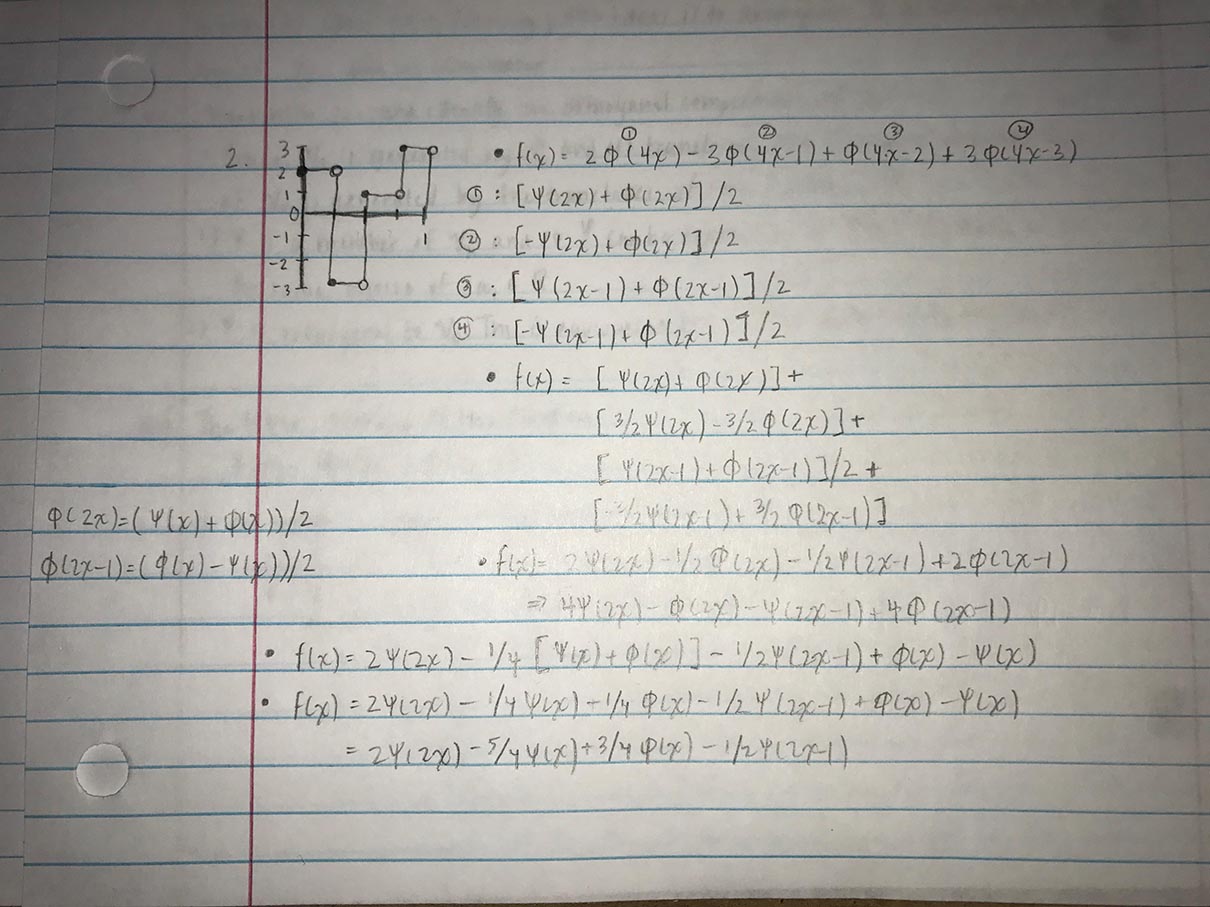 2.
3
2
1
0
-1
-2
-3
1
① ② ③ ④
• f(x) = 2Φ(4x) - 3Φ(4x-1) + Φ(4x-2) + 3Φ(4x-3)
①: [Ψ(2x) + Φ(2x)] /2
②: [-Ψ(2x) + Φ(2x)] /2
③: [Ψ(2x-1) + Φ(2x-1)] /2
④: [-Ψ(2x-1) + Φ(2x-1)] /2
• f(x) = [Ψ(2x) + Φ(2x)] +
[3/2 Ψ(2x) - 3/2 Φ(2x)] +
[Ψ(2x-1) + Φ(2x-1)] /2 +
[-3/2 Ψ(2x-1) + 3/2 Φ(2x-1)]
Φ(2x) = (Ψ(x) + Φ(x))/2
Φ(2x-1) = (Φ(x) - Ψ(x))/2
• f(x) = 2Ψ(2x) - 1/2 Φ(2x) - 1/2 Ψ(2x-1) + 2Φ(2x-1)
⇒ 4Ψ(2x) - Φ(2x) - Ψ(2x-1) + 4Φ(2x-1)
• f(x) = 2Ψ(2x) - 1/4 [Ψ(x) + Φ(x)] - 1/2 Ψ(2x-1) + Φ(x) - Ψ(x)
• f(x) = 2Ψ(2x) - 1/4 Ψ(x) - 1/4 Φ(x) - 1/2 Ψ(2x-1) + Φ(x) - Ψ(x)
= 2Ψ(2x) - 5/4 Ψ(x) + 3/4 Φ(x) - 1/2 Ψ(2x-1)